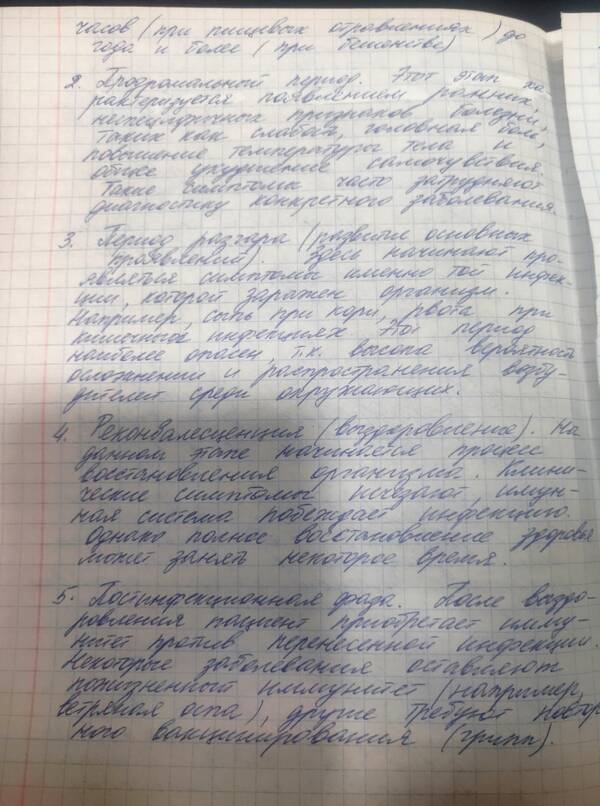 часов (при пищевых отравлениях) до
года и более (при бешенстве)
2. Продромальный период. Этот этап ха
рактеризуется появлением ранних,
неспецифичных признаков болезни,
таких как слабость, головная боль,
повышение температуры тела и
общее ухудшение самочувствия.
Такие симптомы часто затрудняют
диагностику конкретного заболевания.
3. Период разгара (развития основных
проявлений). Здесь начинают про-
являться симптомы именно той инфек-
ции, которой заражен организм.
Например, сыпь при кори, рвота при
кишечных инфекциях. Этот период
наиболее опасен, т.к. высока вероятность
осложнений и распространения возбу-
дителей среди окружающих.
4. Реконвалесценция (выздоровление). На
данном этапе начинается процесс
восстановления организма. Клини-
ческие симптомы исчезают, имун-
ная система побеждает инфекцию.
Однако полное восстановление здоровья
может занять некоторое время.
5. Постинфекционная фаза. После выздо-
ровления пациент приобретает имму-
нитет против перенесенной инфекции.
Некоторые заболевания оставляют
пожизненный иммунитет (например,
ветряная оспа), другие требуют повтор
ного вакцинирования (грипп).